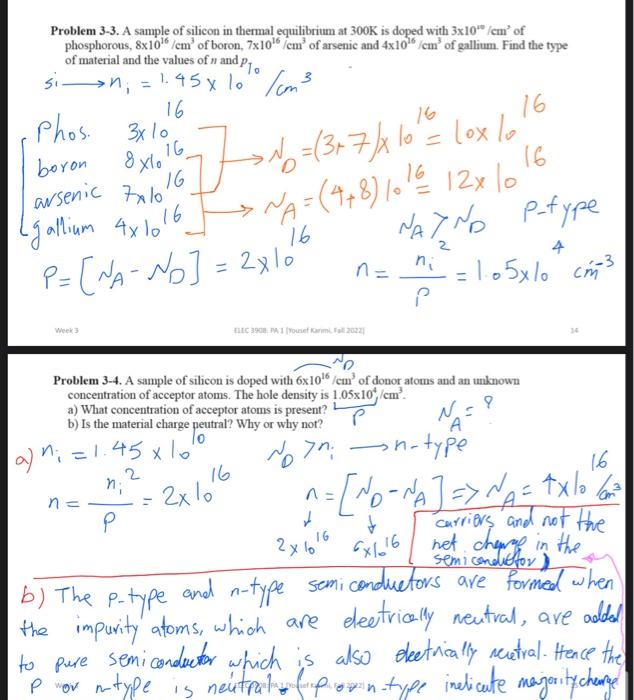 Problem 3-3. A sample of silicon in thermal equilibrium at 300K is doped with 3x10¹⁶ /cm³ of
phosphorous, 8x10¹⁶ /cm³ of boron, 7x10¹⁶ /cm³ of arsenic and 4x10¹⁶ /cm³ of gallium. Find the type
of material and the values of n and p.
Si → nᵢ = 1.45 x 10¹⁰ /cm³
Phos. 3x10¹⁶
boron 8x10¹⁶
arsenic 7x10¹⁶
gallium 4x10¹⁶
→ N_D = (3+7)x10¹⁶ = 10x10¹⁶
→ N_A = (4+8)10¹⁶ = 12x10¹⁶
N_A > N_D P-type
P = [N_A - N_D] = 2x10¹⁶
n = nᵢ²/P = 1.05x10⁴ cm⁻³
Week 3 ELEC 3908: PA 1 [Yousef Karimi, Fall 2022] 14
N_D
Problem 3-4. A sample of silicon is doped with 6x10¹⁶ /cm³ of donor atoms and an unknown
concentration of acceptor atoms. The hole density is 1.05x10⁴ /cm³.
a) What concentration of acceptor atoms is present? P
b) Is the material charge neutral? Why or why not?
N_A = ?
a) nᵢ = 1.45 x 10¹⁰ N_D > nᵢ → n-type
n = nᵢ²/P = 2x10¹⁶ n = [N_D - N_A] => N_A = 4x10¹⁶ /cm³
2x10¹⁶ 6x10¹⁶
carriers and not the
net charge in the
semiconductor)
b) The p-type and n-type semiconductors are formed when
the impurity atoms, which are electrically neutral, are added
to pure semiconductor which is also electrically neutral. Hence the
P or n-type is neutral. (P or n-type indicate majority charge